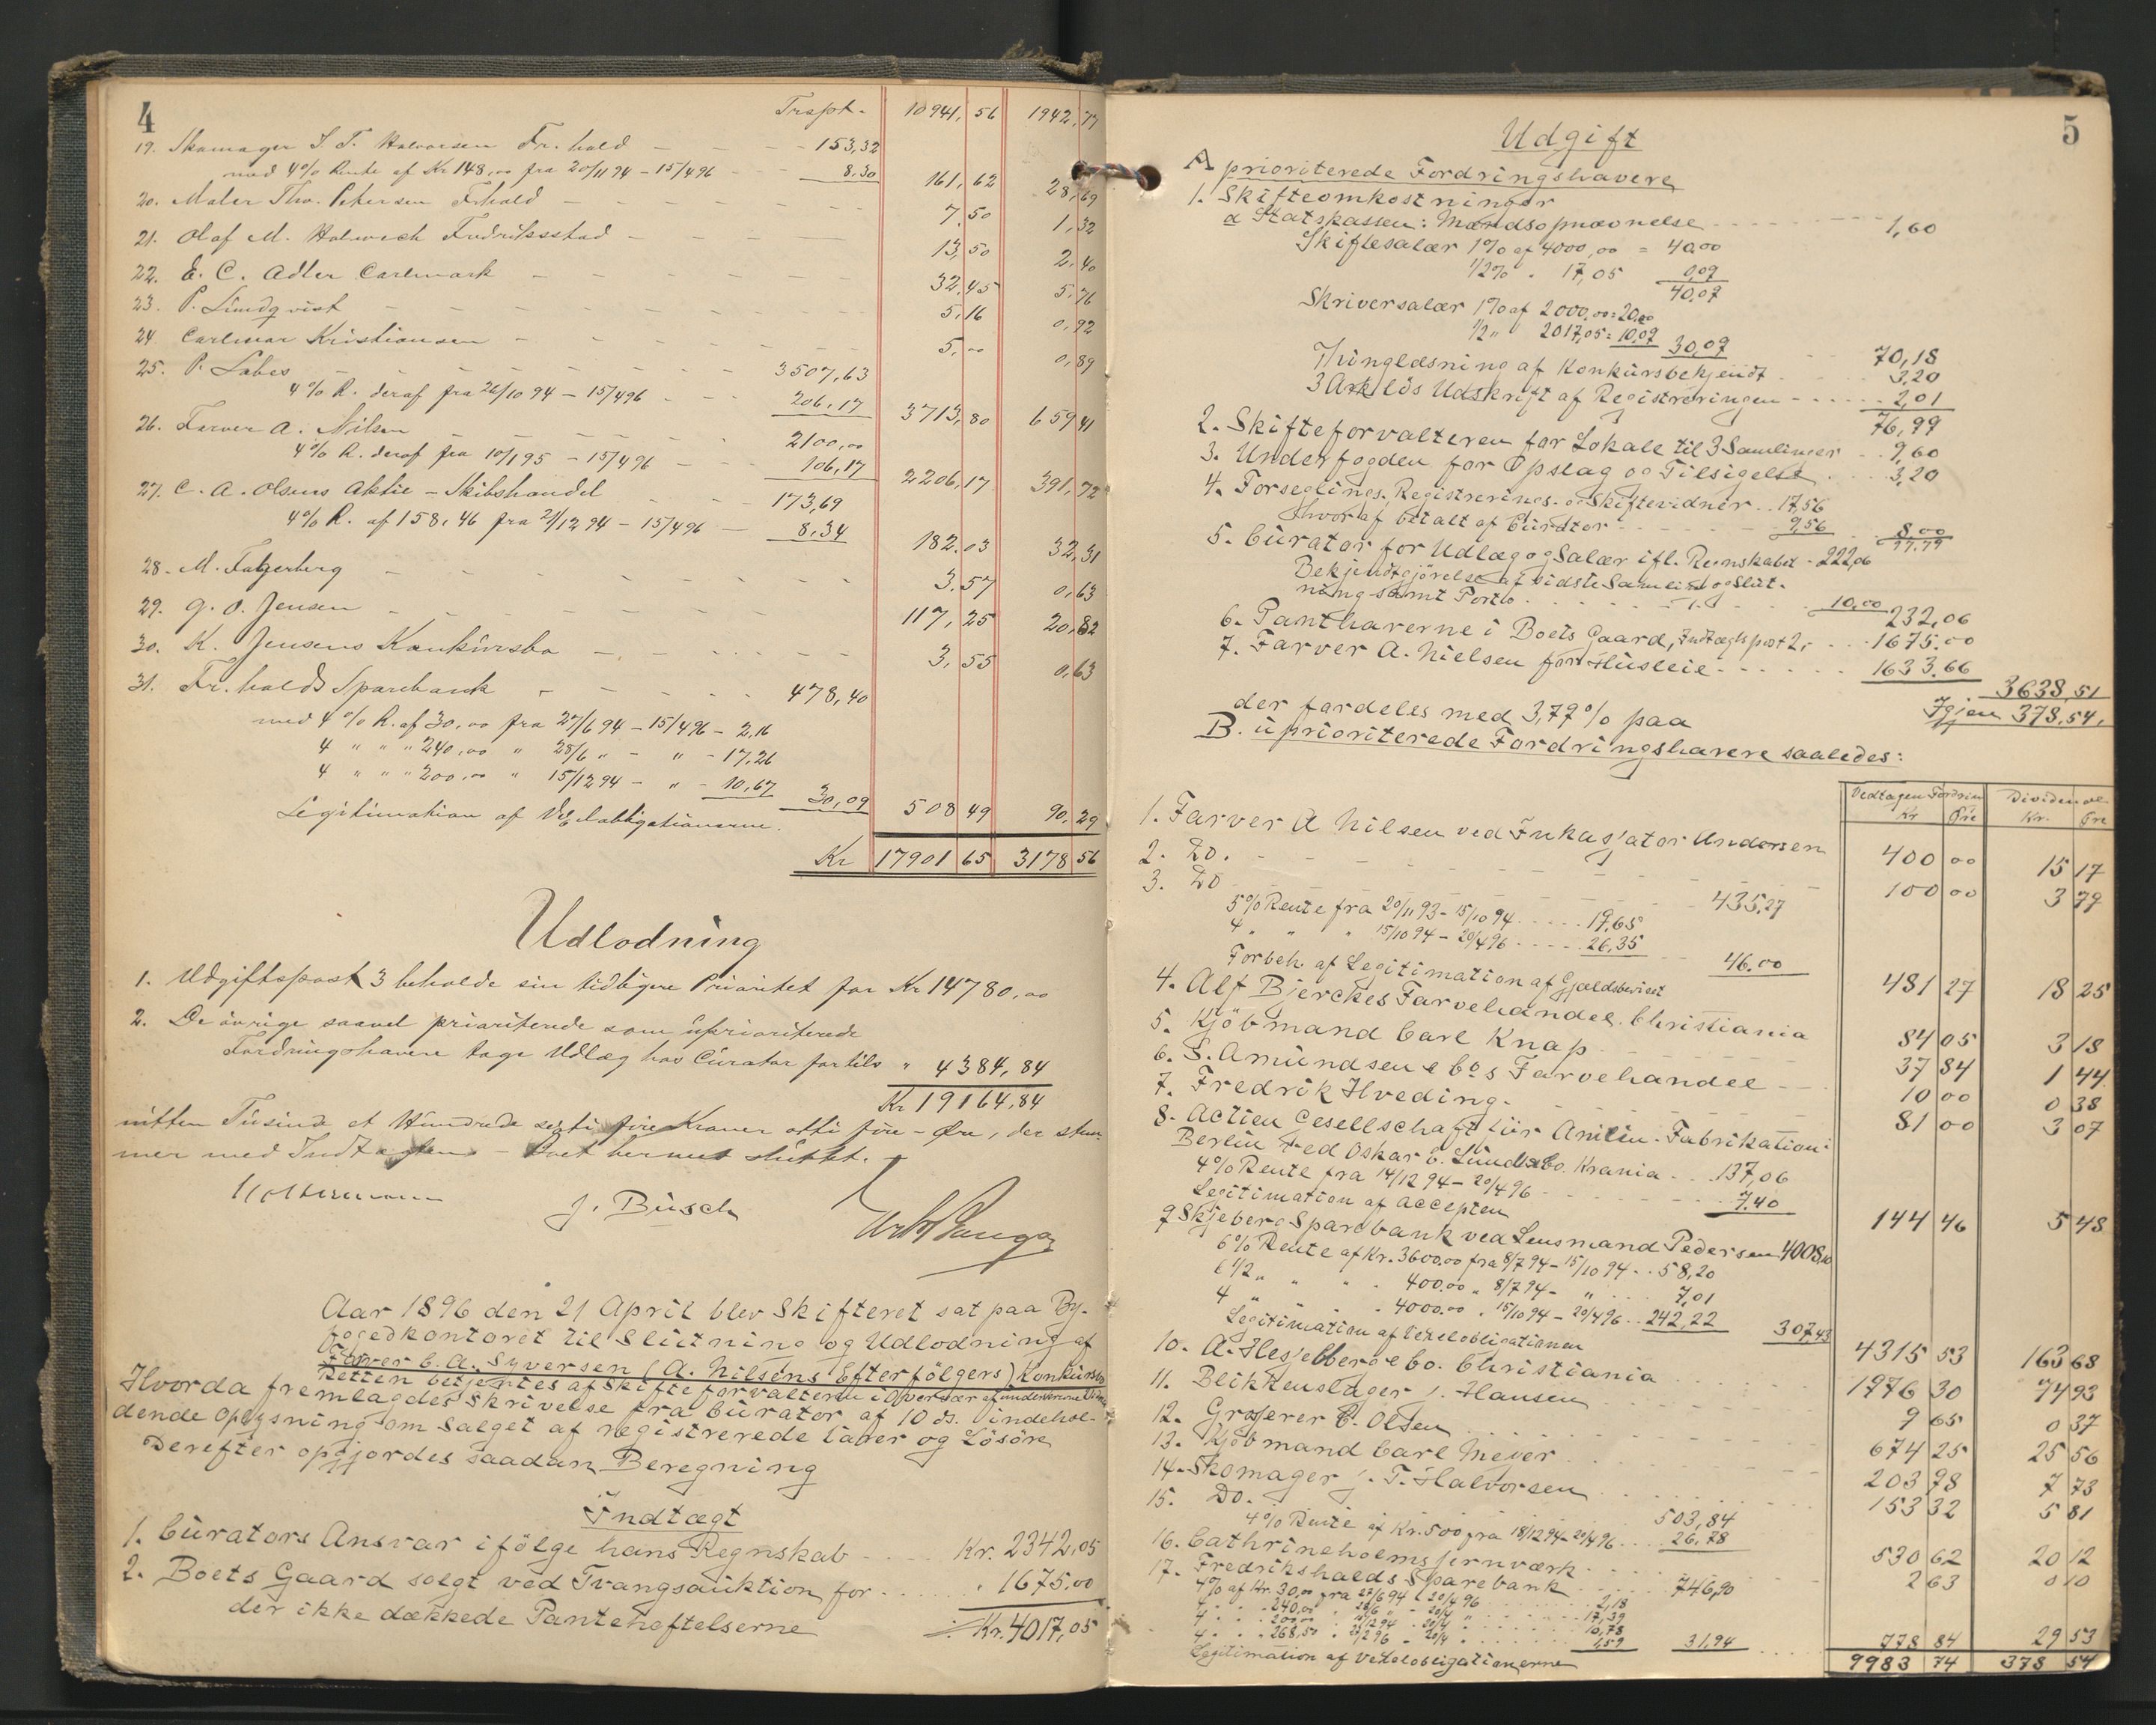 4
Trspt. 10941,56 1942,77
19. Skomager J. T. Halvorsen Fr.hald - - - 153,32
med 4% Rente af Kr 148,00 fra 20/11 94 - 15/4 96 - - 8.30 161,62 28,69
20. Maler Tho. Petersen Frhald - - - - - - - 7,50 1,32
21. Olaf M. Holwech Fredriksstad - - - - 13,50 2,40
22. E. C. Adler Carlmark - - - - - - 32,45 5,76
23. P. Lindqvist - - - - - - - - 5,16 0,92
24. Carlmar Kristiansen - - - - - - 5,00 0,89
25. P. Labes - - - - - - - - 3507,63
4% R. deraf fra 26/10 94 - 15/4 96 - - - 206,17 3713,80 659 41
26. Farver A. Nilsen - - - - - - 2100,00
4% R. deraf fra 10/1 95 - 15/4 96 - - 106,17 2206,17 391,72
27. C. A. Olsens Aktie-Skibshandel - - 173,69
4% R. af 158,46 fra 21/12 94 - 15/4 96 - 8,34 182,03 32,31
28. M. Fagerberg - - - - - - - - 3,57 0,63
29. G. O. Jensen - - - - - - - - 117,25 20,82
30. K. Jensens Konkursbo - - - - - - 3,55 0,63
31. Fr.halds Sparebank - - - - - 478,40
med 4% R. af 30,00 fra 27/6 94 - 15/4 96 - 2,16
4 " " " 240,00 " 28/6 " - " - 17,26
4 " " " 200,00 " 15/12 94 - " - 10,67 30,09 508 49 90,29
Legitimation af Vexelobligationerne.
Kr 17901 65 3178 56
Udlodning
1. Udgiftspost 3 beholde sin tidligere Prioritet for Kr 14780,00
2. De øvrige saavel prioriterede som uprioriterede
Fordringshavere tage Udlæg hos Curator fortils " 4384,84
Kr 19164,84
nitten Tusinde et Hundrede sexti fire Kroner otti fire - Øre, der stem-
mer med Indtægten - Boet hermed sluttet.
J. Busch
Aar 1896 den 21 April blev Skifteret sat paa By-
fogedkontoret til Slutning og Udlodning af
Farver C. A. Syversen (A. Nilsens Efterfölgers) Konkursbo
Retten betjentes af Skifteforvalteren i Overvær af underskrevne Vidner
Hvorda fremlagdes Skrivelse fra Curator af 10 ds. indehol-
dende Oplysning om Salget af registrerede Varer og Lösöre
Derefter opgjordes saadan Beregning
Indtægt
1. Curators Ansvar ifölge hans Regnskab - - Kr. 2342,05
2. Boets Gaard solgt ved Tvangsauktion for . . . . " 1675,00
der ikke dækkede Panteheftelserne Kr. 4017,05
5
Udgift
A prioriterede Fordringshavere
1. Skifteomkostninger
a Statskassen: Mændsopnævnelse - - - - 1,60
Skiftesalær 1% af 4000,00 = 40,00
1/2% " 17,05 0,09
40,09
Skriversalær 1% af 2000,00 = 20,00
1/2 " 2017,05 = 10,09 30,09 70,18
Thinglæsning af Konkursbekjendt . . . . 3,20
3 Ark lös Udskrift af Registreringen - - - - 2,01
76,99
2. Skifteforvalteren for Lokale til 3 Samlinger . . 9,60
3. Underfogden for Opslag og Tilsigelse . . . 3,20
4. Forseglings, Registrerings- og Skiftevidner . . 17,56
Hvoraf betalt af Curator - - - - - 9,56 8,00
97.79
5. Curator for Udlæg og Salær ifl. Regnskabet - 222,06
Bekjendtgjörelse af sidste Samling og Slut-
ning samt Porto . . . . . 10,00 232,06
6. Panthaverne i Boets Gaard, Indtægtspost 2, . . . 1675.00
7. Farver A. Nielsen for Husleie - - - - - 1633.66
3638,51
der fordeles med 3,79% paa Igjen 378,54.
B. uprioriterede Fordringshavere saaledes:
Vedtagen Fordrin Dividende
Kr Øre Kr. Øre
1. Farver A Nilsen ved Inkassator Andersen 400 00 15 17
2. Do. - - - - - - - - - 100 00 3 79
3. Do - - - - - - - - 435,27
5% Rente fra 20/11 93 - 15/10 94 . . . . 19,65
4 " " " 15/10 94 - 20/4 96 . . . . 26,35 46.00
Forbeh. af Legitimation af Gjældsbeviset 481 27 18 25
4. Alf Bjerckes Farvehandel. Christiania 84 05 3 18
5. Kjöbmand Carl Knap - - - - - 37 84 1 44
6. S. Amundsen & Co's Farvehandel - - - 10 00 0 38
7. Fredrik Hveding - - - - - - - 81 00 3 07
8. Actien Gesellschaft für Anilin-Fabrikation i
Berlin ved Oskar C. Lund & Co. Krania . . . 137,06
4% Rente fra 14/12 94 - 20/4 96 - - - - - 7.40
Legitimation af Accepten 144 46 5 48
9 Skjeberg Sparebank ved Lensmand Pedersen 4008,10
6% Rente af Kr. 3600.00 fra 8/7 94 - 15/10 94 . . 58,20
6 1/2 " " " " 400.00 " 8/7 94 - " . . . . 7,01
4 " " " 4000.00 " 15/10 94 - 20/4 96 . . 242,22 307,43
Legitimation af Vexelobligationen 4315 53 163 68
10. A. Hesselberg & Co. Christiania . . . . 1976 30 74 93
11. Blikkenslager J. Hansen . . . . . . 9 65 0 37
12. Grosserer C. Olsen . . . . . . . 674 25 25 56
13. Kjöbmand Carl Meyer . . . . . 203 98 7 73
14. Skomager J. T. Halvorsen . . . . . 153 32 5 81
15. Do. . . . . . . . 503,84
4% Rente af Kr. 500 fra 18/12 94 - 20/4 96 . . . 26,78 530 62 20 12
16. Cathrineholms Jernværk . . . . . . 2 63 0 10
17. Fredrikshalds Sparebank . . . . . 746,90
4% af Kr. 30,00 fra 27/6 94 - 20/4 96 . . . . 2,18
4 " " " 240,00 " 28/6 " - 20/4 " . . . . 17,39
4 " " " 200,00 " 15/12 94 - 20/4 " . . . . 10,78
4 " " " 268,50 " - 20/4 " . . . . 1,59 31,94 778 84 29 53
Legitimation af Vexelobligationerne 9983 74 378 54